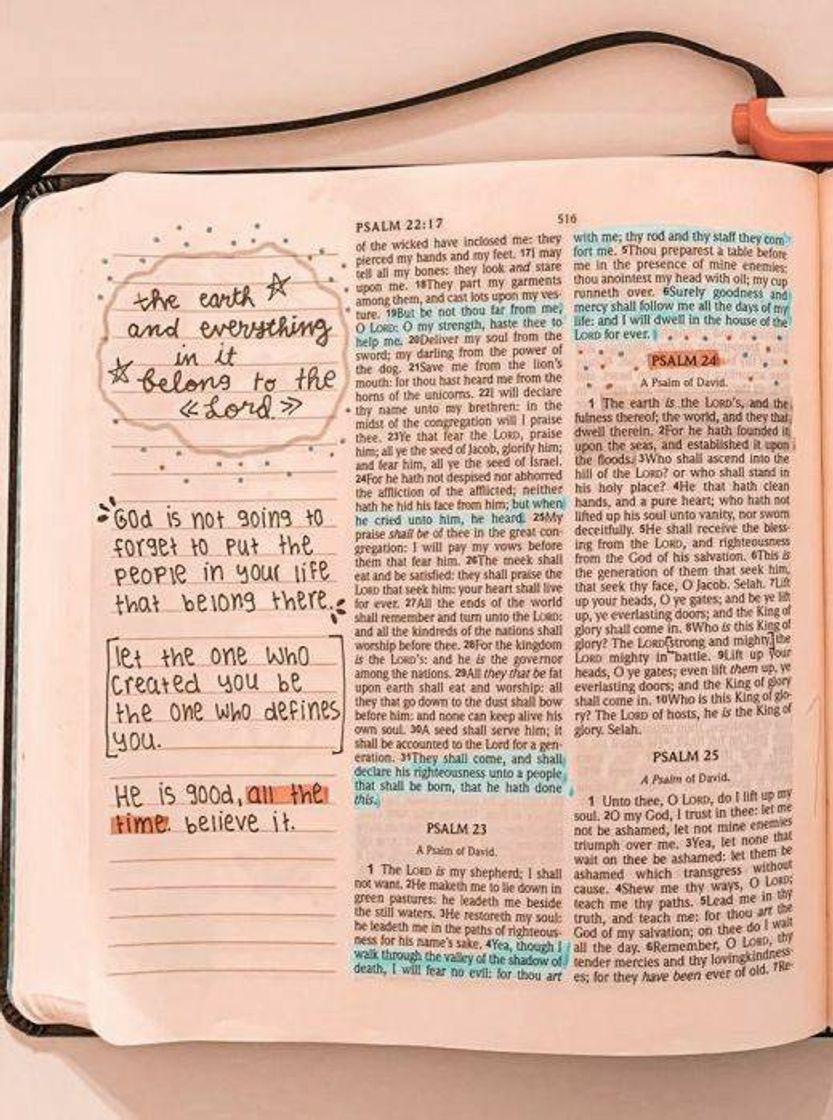 the earth
and everything
in it
belong to the
«Lord»
"God is not going to
forget to put the
people in your life
that belong there."
[let the one who
created you be
the one who defines
you.]
He is good, all the
time. believe it.
PSALM 22:17
516
of the wicked have inclosed me: they
pierced my hands and my feet. 17I may
tell all my bones: they look and stare
upon me. 18They part my garments
among them, and cast lots upon my ves-
ture. 19But be not thou far from me,
O LORD: O my strength, haste thee to
help me. 20Deliver my soul from the
sword; my darling from the power of
the dog. 21Save me from the lion's
mouth: for thou hast heard me from the
horns of the unicorns. 22I will declare
thy name unto my brethren: in the
midst of the congregation will I praise
thee. 23Ye that fear the LORD, praise
him; all ye the seed of Jacob, glorify him;
and fear him, all ye the seed of Israel.
24For he hath not despised nor abhorred
the affliction of the afflicted; neither
hath he hid his face from him; but when
he cried unto him, he heard. 25My
praise shall be of thee in the great con-
gregation: I will pay my vows before
them that fear him. 26The meek shall
eat and be satisfied: they shall praise the
LORD that seek him: your heart shall live
for ever. 27All the ends of the world
shall remember and turn unto the LORD:
and all the kindreds of the nations shall
worship before thee. 28For the kingdom
is the LORD's: and he is the governor
among the nations. 29All they that be fat
upon earth shall eat and worship: all
they that go down to the dust shall bow
before him: and none can keep alive his
own soul. 30A seed shall serve him; it
shall be accounted to the Lord for a gen-
eration. 31They shall come, and shall
declare his righteousness unto a people
that shall be born, that he hath done
this.
PSALM 23
A Psalm of David.
1 The LORD is my shepherd; I shall
not want. 2He maketh me to lie down in
green pastures: he leadeth me beside
the still waters. 3He restoreth my soul:
he leadeth me in the paths of righteous-
ness for his name's sake. 4Yea, though I
walk through the valley of the shadow of
death, I will fear no evil: for thou art
with me; thy rod and thy staff they com
fort me. 5Thou preparest a table before
me in the presence of mine enemies:
thou anointest my head with oil; my cup
runneth over. 6Surely goodness and
mercy shall follow me all the days of my
life: and I will dwell in the house of the
LORD for ever.
PSALM 24
A Psalm of David.
1 The earth is the LORD's, and the
fulness thereof; the world, and they that
dwell therein. 2For he hath founded it
upon the seas, and established it upon
the floods. 3Who shall ascend into the
hill of the LORD? or who shall stand in
his holy place? 4He that hath clean
hands, and a pure heart; who hath not
lifted up his soul unto vanity, nor sworn
deceitfully. 5He shall receive the bless-
ing from the LORD, and righteousness
from the God of his salvation. 6This is
the generation of them that seek him,
that seek thy face, O Jacob. Selah. 7Lift
up your heads, O ye gates; and be ye lift
up, ye everlasting doors; and the King of
glory shall come in. 8Who is this King of
glory? The LORD strong and mighty, the
LORD mighty in battle. 9Lift up your
heads, O ye gates; even lift them up, ye
everlasting doors; and the King of glory
shall come in. 10Who is this King of glo-
ry? The LORD of hosts, he is the King of
glory. Selah.
PSALM 25
A Psalm of David.
1 Unto thee, O LORD, do I lift up my
soul. 2O my God, I trust in thee: let me
not be ashamed, let not mine enemies
triumph over me. 3Yea, let none that
wait on thee be ashamed: let them be
ashamed which transgress without
cause. 4Shew me thy ways, O LORD;
teach me thy paths. 5Lead me in thy
truth, and teach me: for thou art the
God of my salvation; on thee do I wait
all the day. 6Remember, O LORD, thy
tender mercies and thy lovingkindness-
es; for they have been ever of old. 7Re-